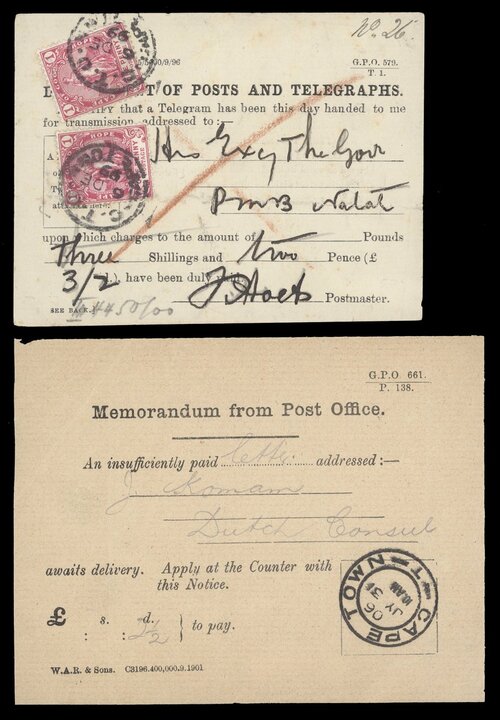 No. 26.
G.P.O. 579.
T. 1.
OF POSTS AND TELEGRAPHS.
that a Telegram has been this day handed to me
for transmission, addressed to :—
His Excy The Govr
PMB Natal
upon which charges to the amount of Pounds
Three Shillings and two Pence (£
3/2 d.), have been duly
Postmaster.
SEE BACK.
G.P.O. 661.
P. 138.
Memorandum from Post Office.
An insufficiently paid letter addressed :—
J Komam
Dutch Consul
awaits delivery. Apply at the Counter with
this Notice.
£ s. d. 2½ } to pay.
CAPE TOWN
10 AM
JY 31
06
W.A.R. & Sons. C3196.400,000.9.1901